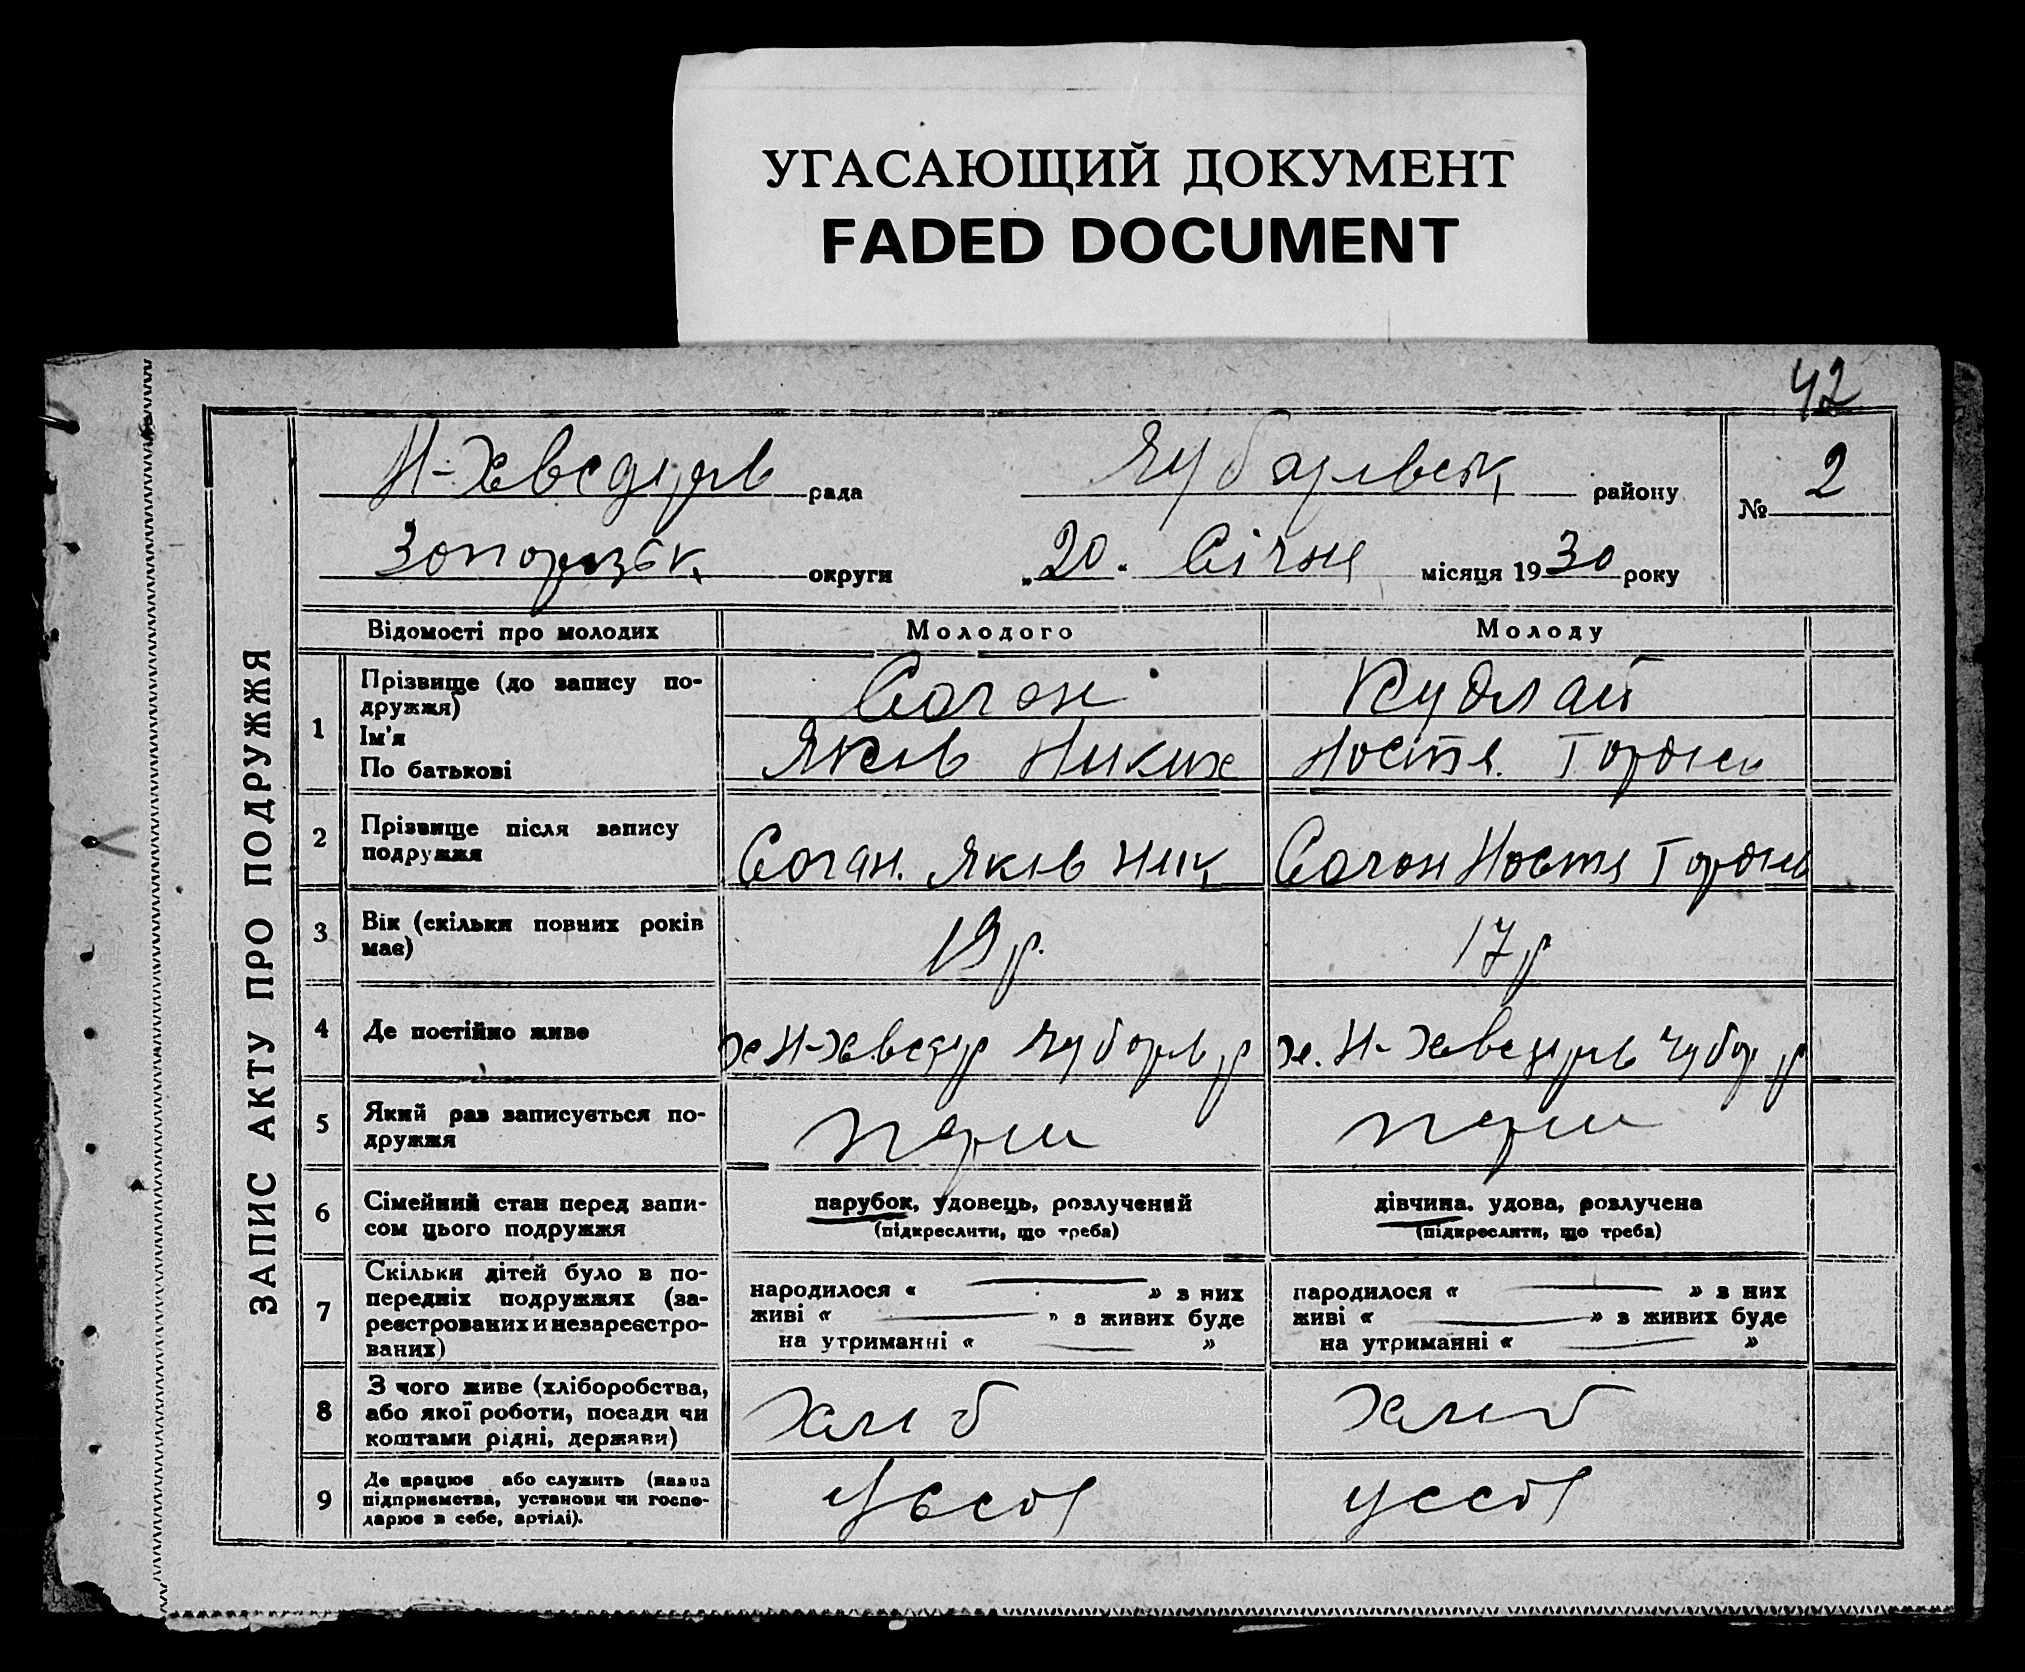 УГАСАЮЩИЙ ДОКУМЕНТ
FADED DOCUMENT
42
ЗАПИС АКТУ ПРО ПОДРУЖЖЯ
Н-Хведорів рада Чубарівськ району № 2
Запорізьк округи „20“ Січня місяця 1930 року
Відомості про молодих Молодого Молоду
1 Прізвище (до запису по-
дружжя) Соган Кудлай
Ім'я
По батькові Яків Никиф Настя Гордіев
2 Прізвище після запису
подружжя Соган. Яків Ник Соган Настя Гордіев
3 Вік (скільки повних років
має) 19 р. 17 р
4 Де постійно живе х Н-Хведор Чубарів р х. Н-Хведорів Чубар р
5 Який раз записується по-
дружжя перш перш
6 Сімейний стан перед запи-
сом цього подружжя
парубок, удовець, розлучений дівчина, удова, розлучена
(підкреслити, що треба) (підкреслити, що треба)
7 Скільки дітей було в по-
передніх подружжях (за-
реєстрованих и незареєстро-
ваних)
народилося « » з них народилося « » з них
живі « » з живих буде живі « » з живих буде
на утриманні « » на утриманні « »
8 З чого живе (хліборобства,
або якої роботи, посади чи
коштами рідні, держави) хліб хліб
9 Де працює або служить (назва
підприємства, установи чи госпо-
дарює в себе, артілі). у себе у себе